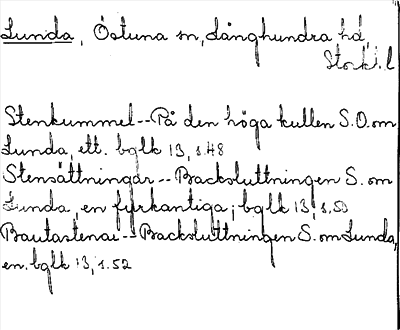 Lunda, Östuna sn, Långhundra hd,
Stockh. l
Stenkummel--På den höga kullen S.O. om
Lunda, ett. bglk 13, s.48
Stensättningar--Backsluttningen S. om
Lunda, en fyrkantiga; bglk 13, s.50
Bautastenar--Backsluttningen S. om Lunda,
en. bglk 13, s.52